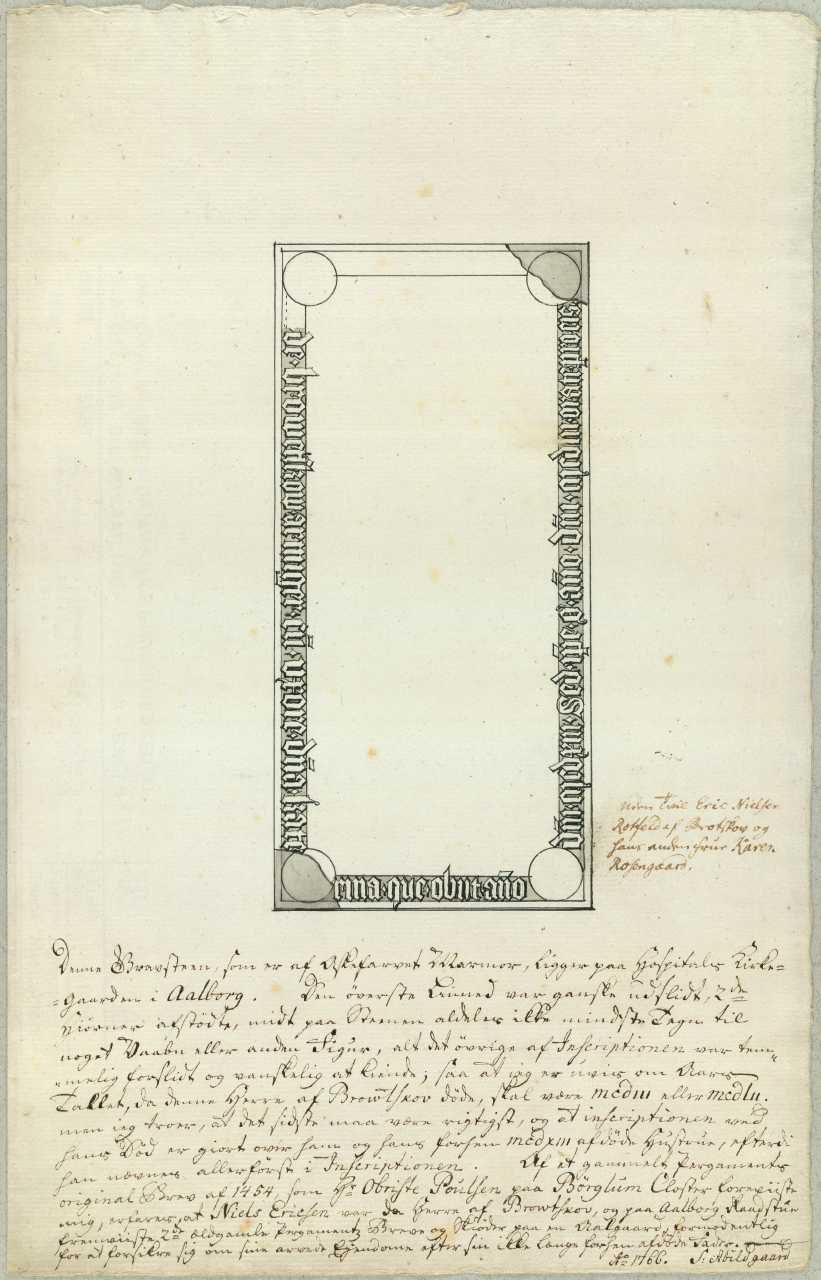 de brouetskov armiger cū uxor dn̄a kat
rina que obijt an̄o
dn̄i mcdxiii Sed ip̄e
an̄o dn̄i mcdlii
uden Tvil Eric Nielsen
Rotfeld af Brotskov og
hans anden Frue Karen
Rosengaard.
Denne Gravsteen, som er af Askefarvet Marmor, ligger paa Hospitals Kirke-
-Gaarden i Aalborg. Den överste Linned var ganske udslidt, 2de
Hiörner afstödte, midt paa Steenen aldeles ikke mindste Tegn til
noget Vaaben eller anden Figur, alt det övrige af Inscriptionen var tem-
-melig forslidt og vanskelig at kiende; saa at jeg er uvis om Aars-
Tallet, da denne Herre af Browtskov döde, skal være mcdiii eller mcdlii.
men jeg troer, at det sidste maa være rigtigst, og at inscriptionen ved
hans Död er giort over ham og hans forhen mcdxiii afdöde Hustrue, efterdi
han nævnes allerförst i Inscriptionen. Af et gammelt Pergaments
original Brev af 1454, som Hr Obriste Poulsen paa Börglum Closter foreviiste
mig, erfares, at Niels Ericsen var da Herre af Browtskov, og paa Aalborg Raadstue
fremviiste 2de ældgamle Pergamentz Breve og Skiöder paa en Aalgaard, formodentlig
for at forsikre sig om sine arvede Ejendomme efter sin ikke længe forhen afdöde Fader.
Ao 1766. S: Abildgaard